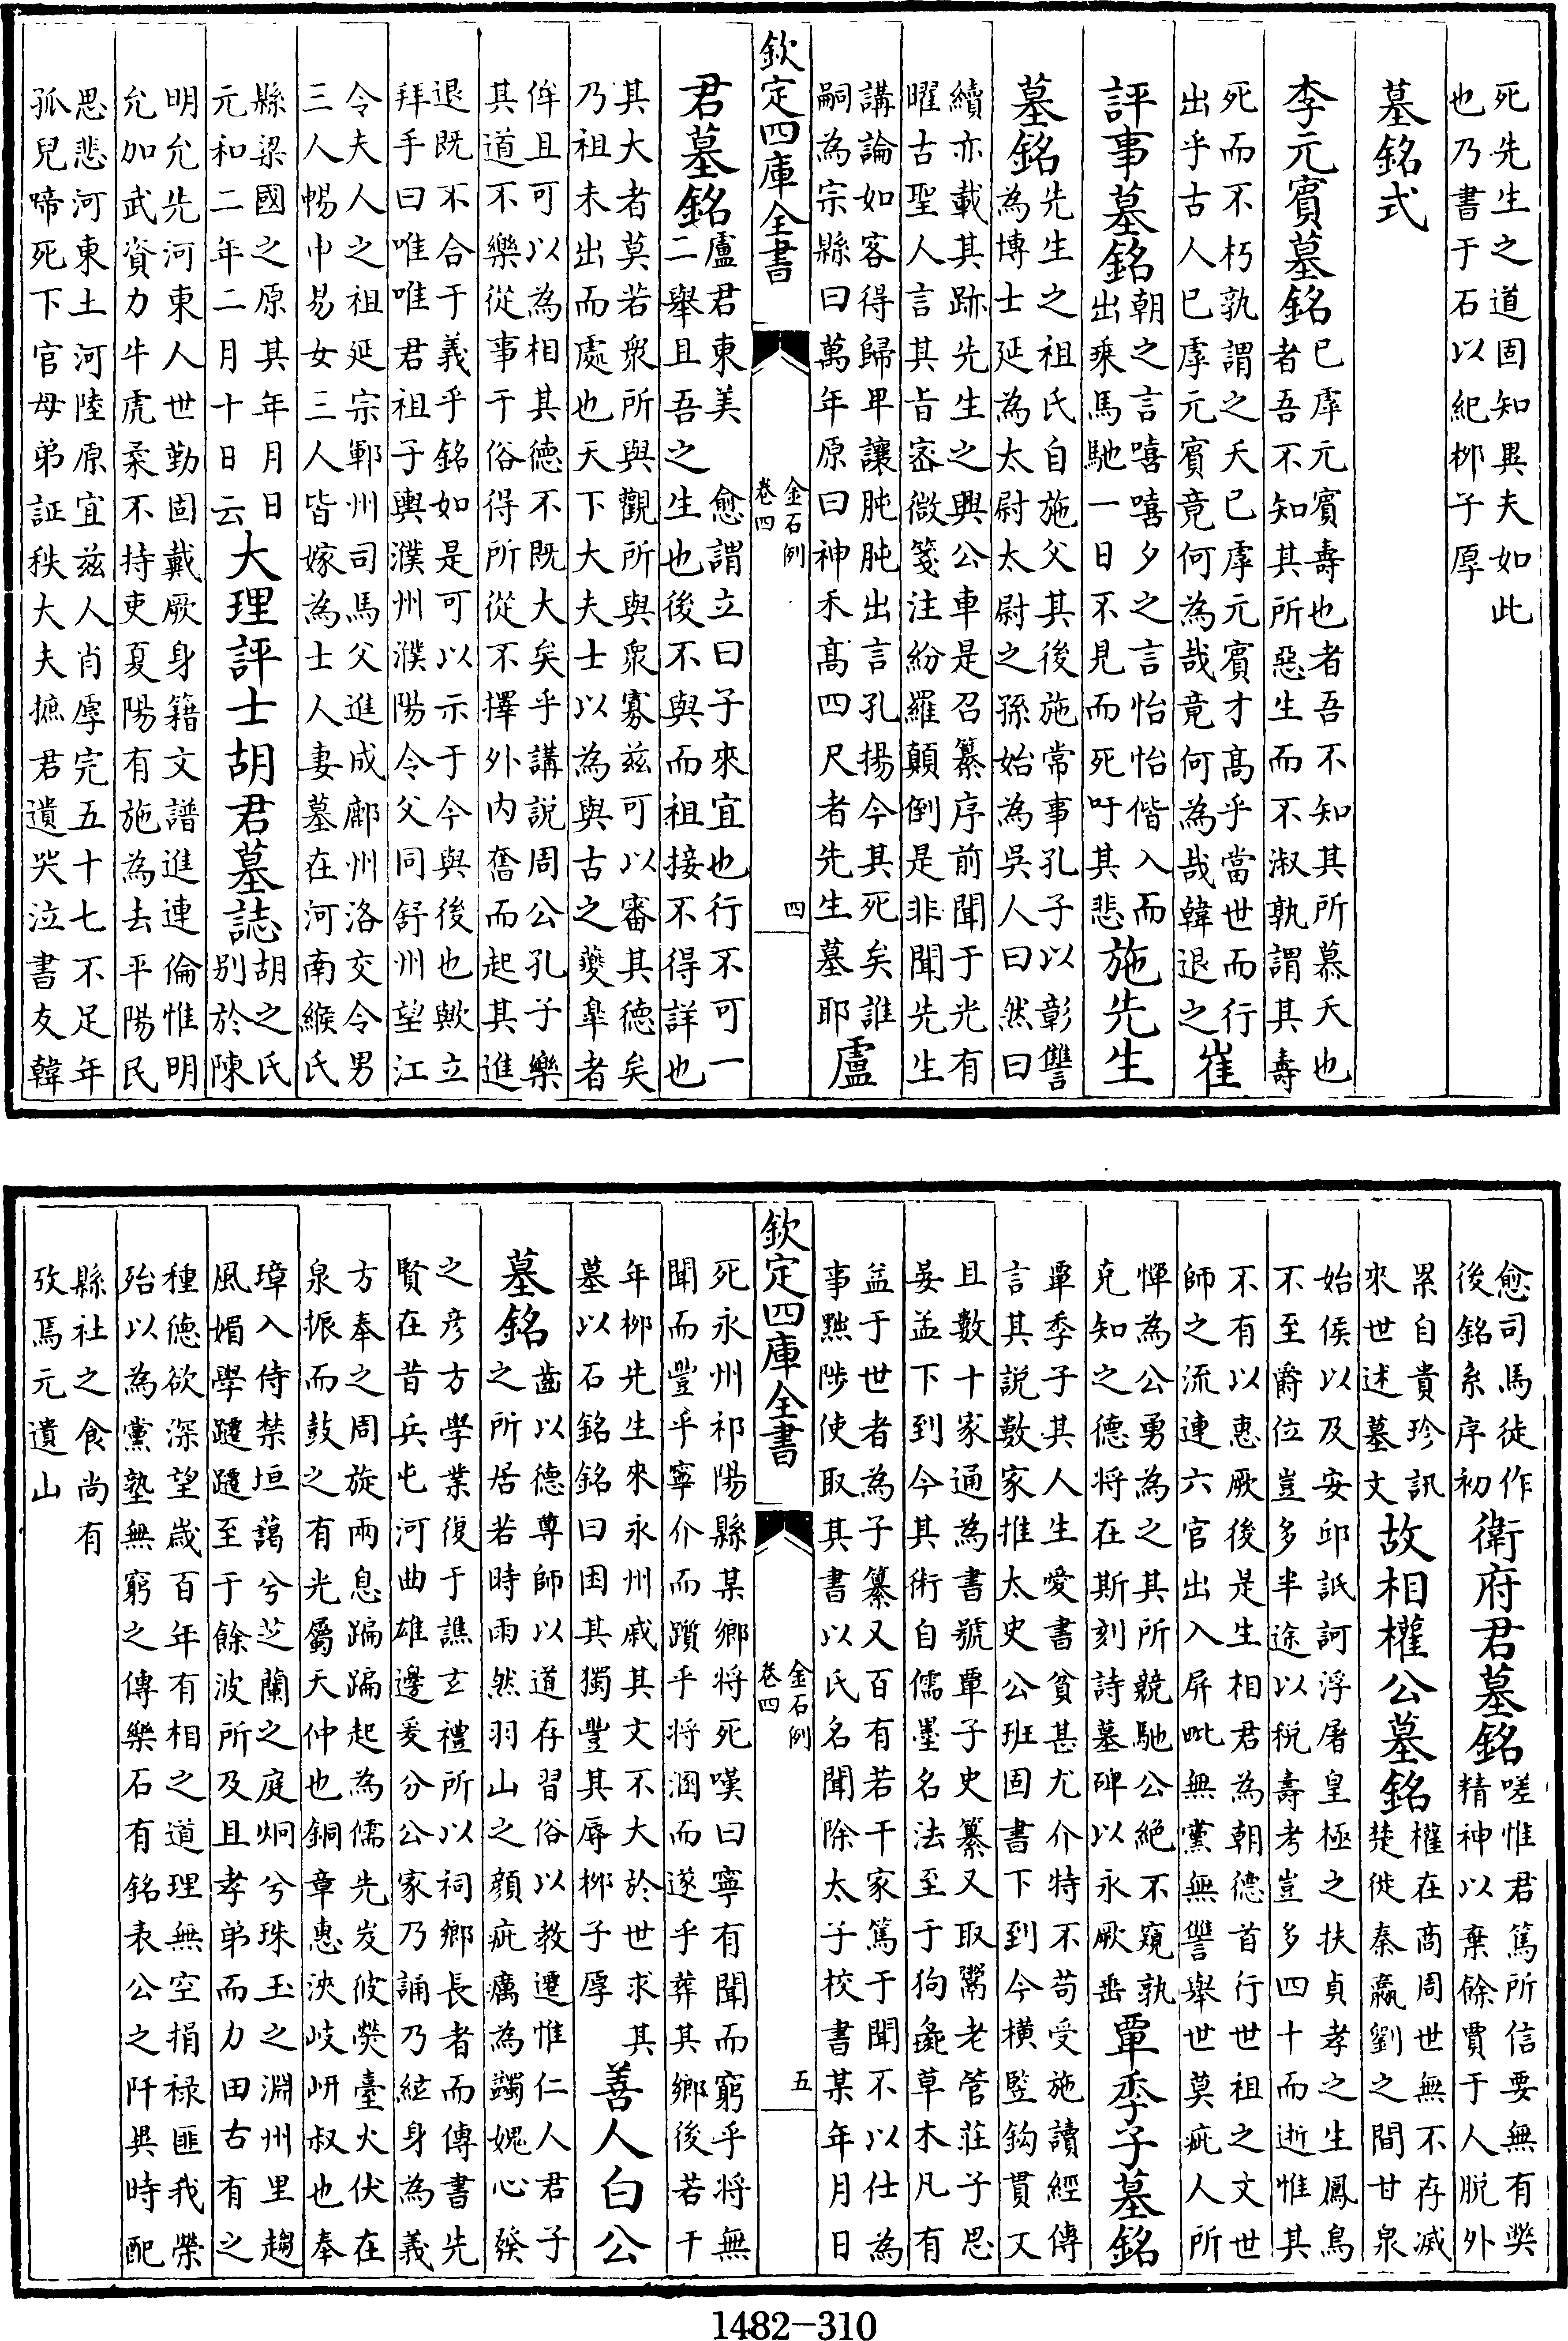 死先生之道固知異夫如此
也乃書于石以紀柳子厚
墓銘式
李元賓墓銘已虖元賓壽也者吾不知其所慕夭也
者吾不知其所惡生而不淑孰謂其壽
死而不朽孰謂之夭已虖元賓才髙乎當世而行
出乎古人已虖元賓竟何為哉竟何為哉韓退之崔
評事墓銘朝之言嘻嘻夕之言怡怡偕入而
出乘馬馳一日不見而死吁其悲施先生
墓銘先生之祖氏自施父其後施常事孔子以彰讐
為博士延為太尉太尉之孫始為吳人曰然曰
續亦載其跡先生之興公車是召纂序前聞于光有
曜古聖人言其旨宻微箋注紛羅顛倒是非聞先生
講論如客得歸卑讓肫肫出言孔揚今其死矣誰
嗣為宗縣曰萬年原曰神禾髙四尺者先生墓耶盧
欽定四庫全書
金石例
卷四
四
君墓銘盧君東美 愈謂立曰子來宜也行不可一
二舉且吾之生也後不與而祖接不得詳也
其大者莫若衆所與觀所與衆寡兹可以審其德矣
乃祖未出而處也天下大夫士以為與古之夔臯者
侔且可以為相其德不既大矣乎講說周公孔子樂
其道不樂從事于俗得所從不擇外内奮而起其進
退既不合于義乎銘如是可以示于今與後也歟立
拜手曰唯唯君祖子輿濮州濮陽令父同舒州望江
令夫人之祖延宗鄆州司馬父進成鄜州洛交令男
三人暢巾易女三人皆嫁為士人妻墓在河南緱氏
縣梁國之原其年月日
元和二年二月十日云大理評士胡君墓誌胡之氏
别於陳
明允先河東人世勤固戴厥身籍文譜進連倫惟明
允加武資力牛虎柔不持吏夏陽有施為去平陽民
思悲河東土河陸原宜兹人肖虖完五十七不足年
孤兒啼死下官母弟証秩大夫摭君遺哭泣書友韓
愈司馬徒作
後銘系序初衛府君墓銘嗟惟君篤所信要無有獘
精神以棄餘賈于人脱外
累自貴珍訊
來世述墓文故相權公墓銘權在商周世無不存滅
楚徙秦嬴劉之間甘泉
始侯以及安邱詆訶浮屠皇極之扶貞孝之生鳳鳥
不至爵位豈多半途以税壽考豈多四十而逝惟其
不有以惠厥後是生相君為朝德首行世祖之文世
師之流連六官出入屏毗無黨無讐舉世莫疵人所
憚為公勇為之其所競馳公絶不窺孰
克知之德将在斯刻詩墓碑以永厥垂覃季子墓銘
覃季子其人生愛書貧甚尤介特不苟受施讀經傳
言其説數家推太史公班固書下到今横竪鈎貫又
且數十家通為書號覃子史纂又取鬻老管莊子思
晏孟下到今其術自儒墨名法至于狗彘草木凡有
益于世者為子纂又百有若干家篤于聞不以仕為
事黜陟使取其書以氏名聞除太子校書某年月日
欽定四庫全書
金石例
卷四
五
死永州祁陽縣某鄉将死嘆曰寧有聞而窮乎将無
聞而豐乎寧介而躓乎将溷而遂乎葬其鄉後若干
年柳先生來永州戚其文不大於世求其
墓以石銘銘曰困其獨豐其辱柳子厚善人白公
墓銘齒以德尊師以道存習俗以教遷惟仁人君子
之所居若時雨然羽山之顔疵癘為蠲媿心發
之彦方學業復于譙玄禮所以祠鄉長者而傳書先
賢在昔兵屯河曲雄邊爰分公家乃誦乃絃身為義
方奉之周旋兩息蹁蹁起為儒先岌彼熒臺火伏在
泉振而鼓之有光屬天仲也銅章惠泱岐岍叔也奉
璋入侍禁垣藹兮芝蘭之庭炯兮珠玉之淵州里趨
風媚學躚躚至于餘波所及且孝弟而力田古有之
種德欲深望歲百年有相之道理無空捐禄匪我榮
殆以為黨塾無窮之傳樂石有銘表公之阡異時配
縣社之食尚有
攷焉元遺山
1482-310